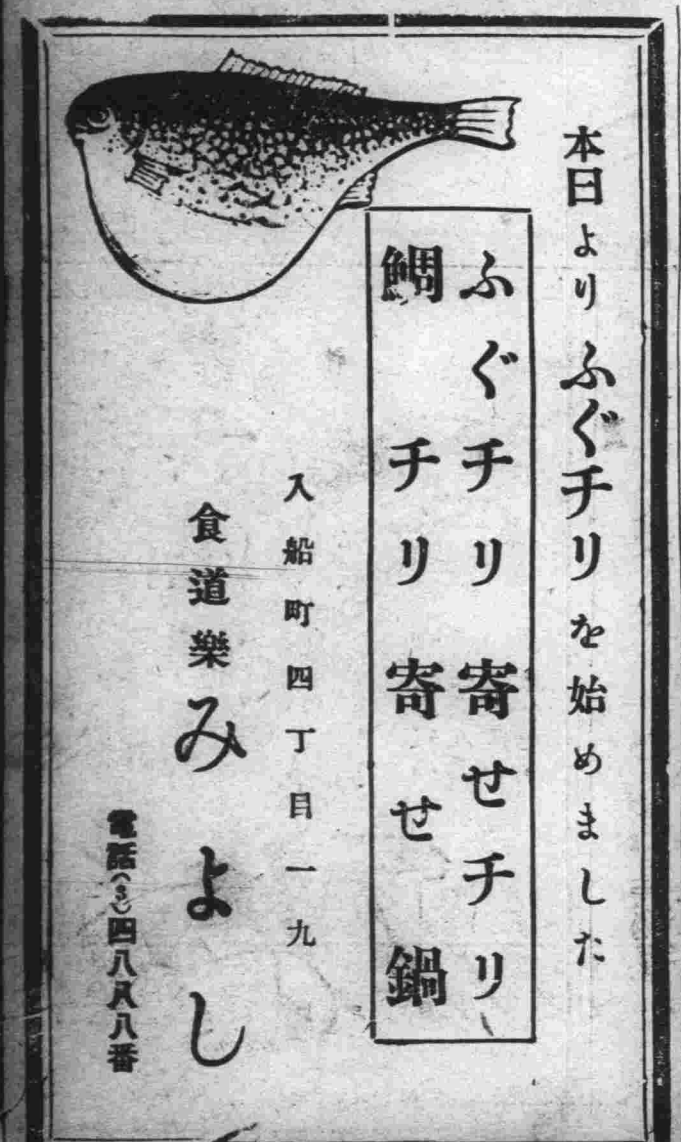 本日よりふぐチリを始めました
ふぐチリ寄せチリ
鯛チリ寄せ鍋
入船町四丁目一九
食道樂みよし
電話(3)四八八八番